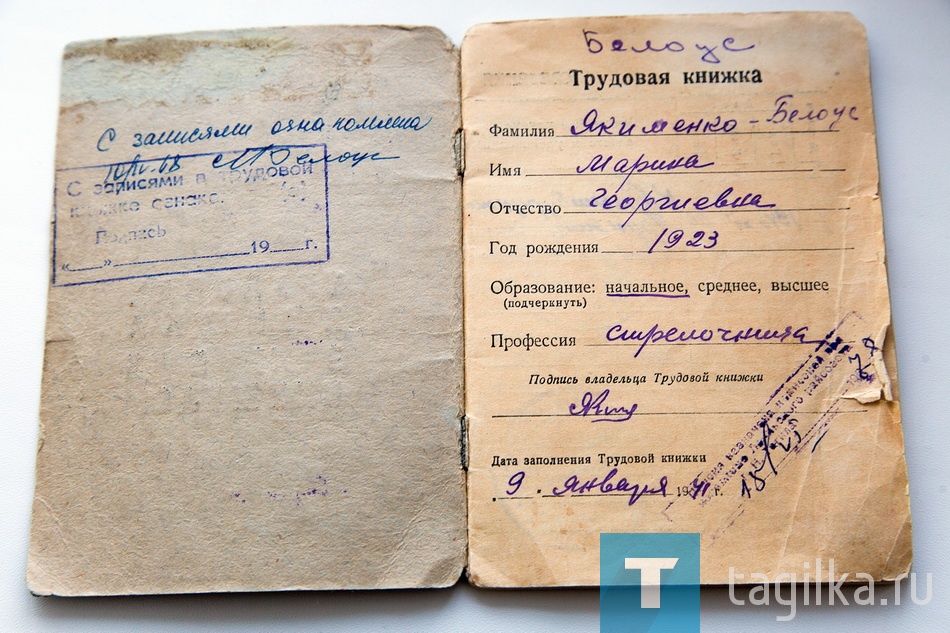 С записями ознакомлена
С записями в трудовой
книжке ознак.
Подпись
«___»______________19___г.
Белоус
Трудовая книжка
Фамилия Якименко-Белоус
Имя Марина
Отчество Георгиевна
Год рождения 1923
Образование: начальное, среднее, высшее
(подчеркнуть)
Профессия стрелочница
Подпись владельца Трудовой книжки
Дата заполнения Трудовой книжки
9. января 1941 г.
T tagilka.ru